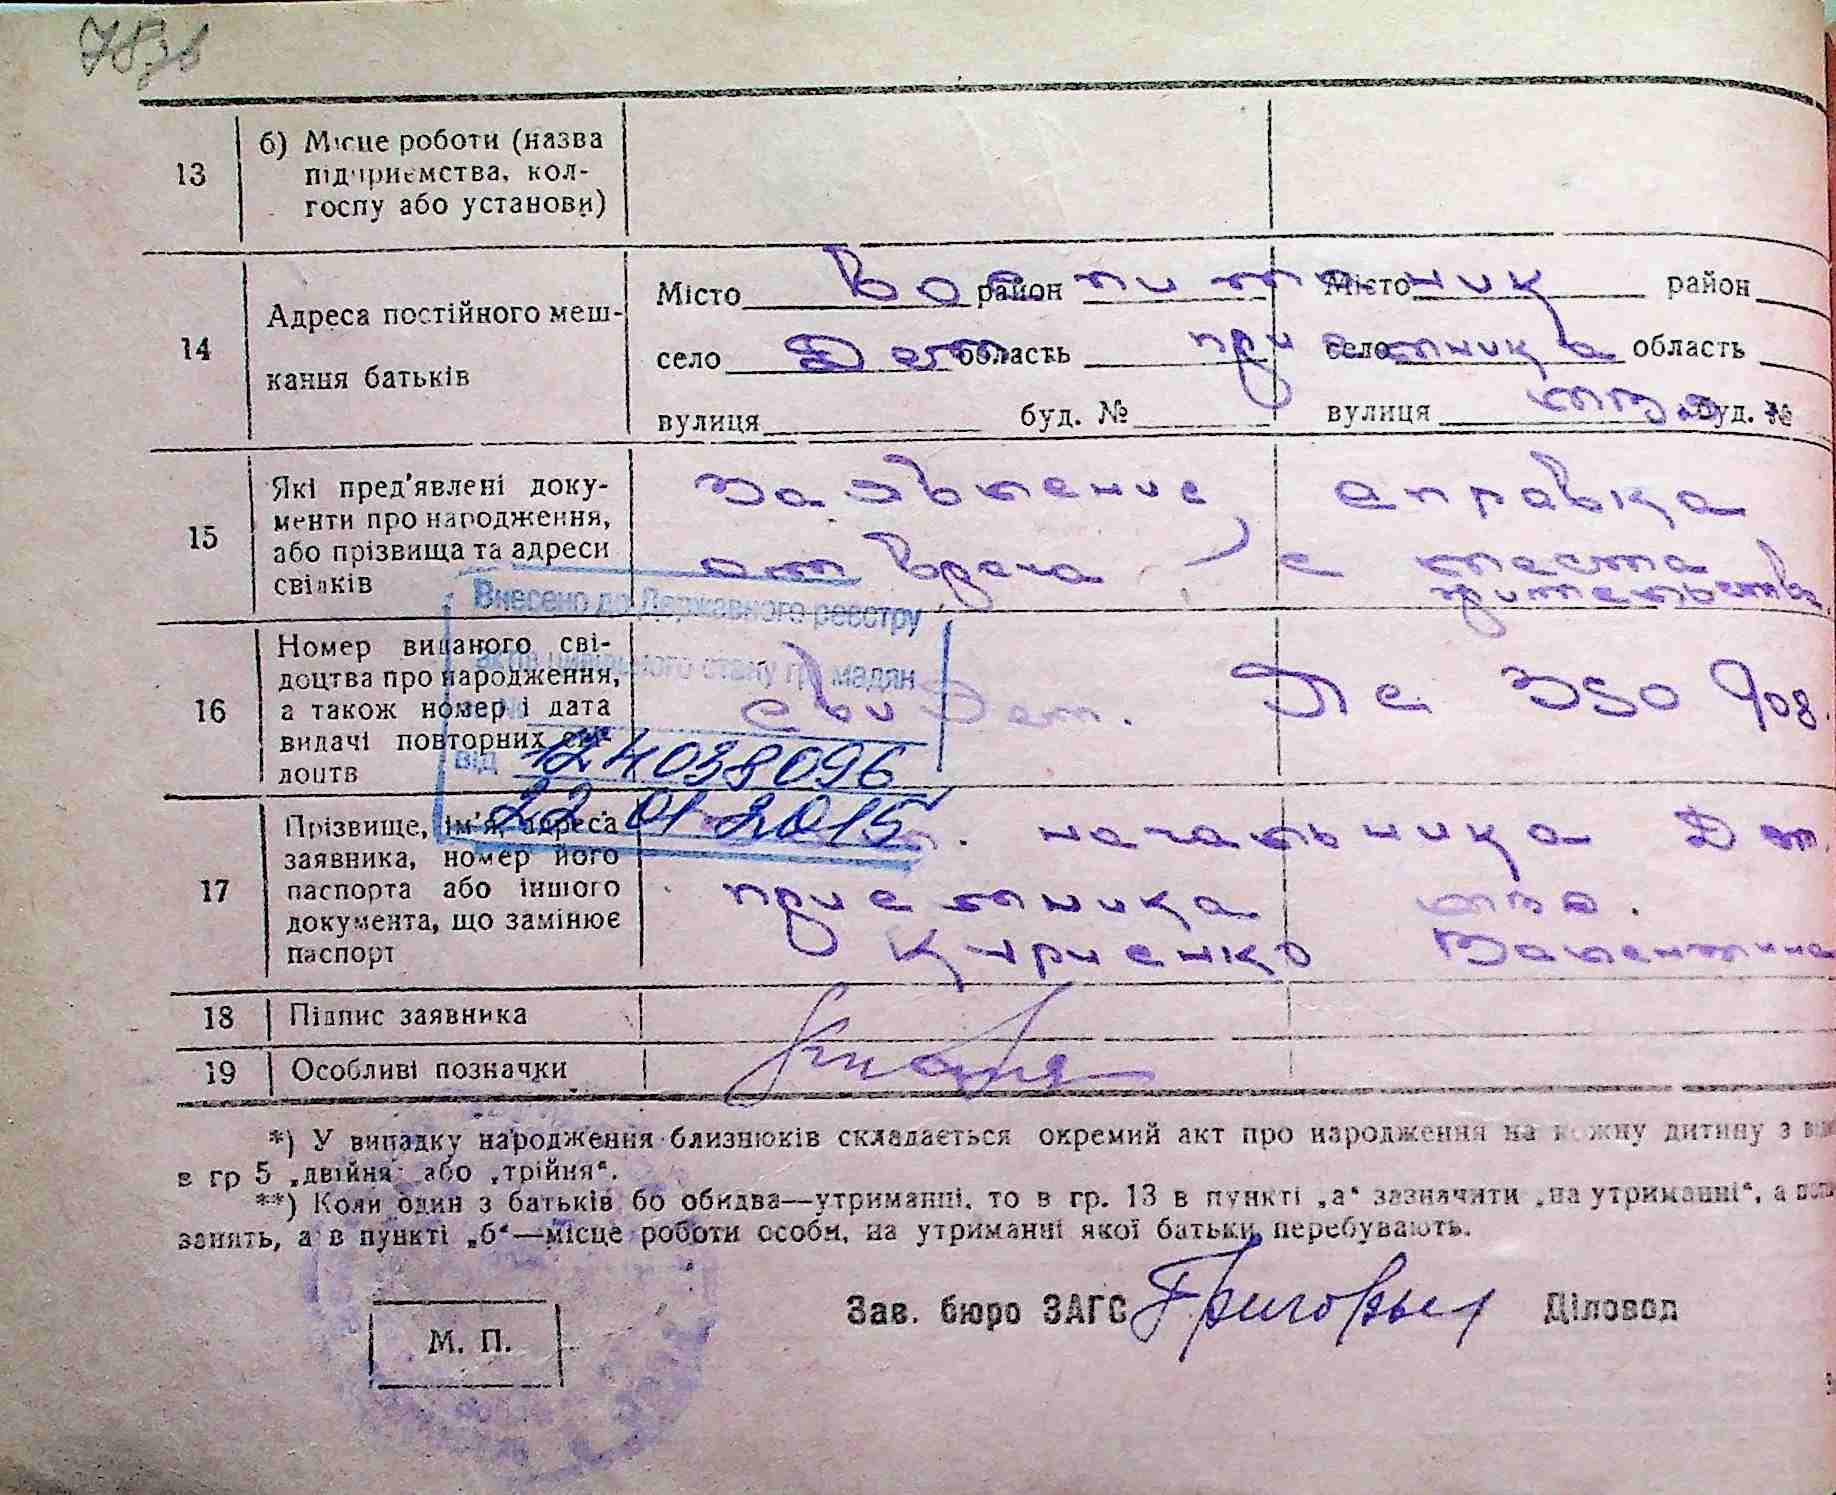 13
б) Місце роботи (назва
підприємства, кол-
госпу або установи)
14
Адреса постійного меш-
кання батьків
Місто район Місто район
село область село область
вулиця буд. № вулиця буд. №
Воспитаник
Дет приемника
15
Які пред'явлені доку-
менти про народження,
або прізвища та адреси
свідків
заявление, справка
от врача, с места
жительства
16
Номер виданого сві-
доцтва про народження,
а також номер і дата
видачі повторних сві-
доцтв
свидет. 350908.
Внесено до Державного реєстру
актів цивільного стану громадян
від 124038096
22 01 2015
17
Прізвище, ім'я, адреса
заявника, номер його
паспорта або іншого
документа, що замінює
паспорт
начальника Дет.
приемника
Кириенко Валентина
18
Підпис заявника
19
Особливі позначки
*) У випадку народження близнюків складається окремий акт про народження на кожну дитину з
в гр 5 „двійня" або „трійня".
**) Коли один з батьків бо обидва—утриманці, то в гр. 13 в пункті „а" зазначити „на утриманні", а
занять, а в пункті „б"—місце роботи особи, на утриманні якої батьки перебувають.
М. П.
Зав. бюро ЗАГС Григорьев Діловод